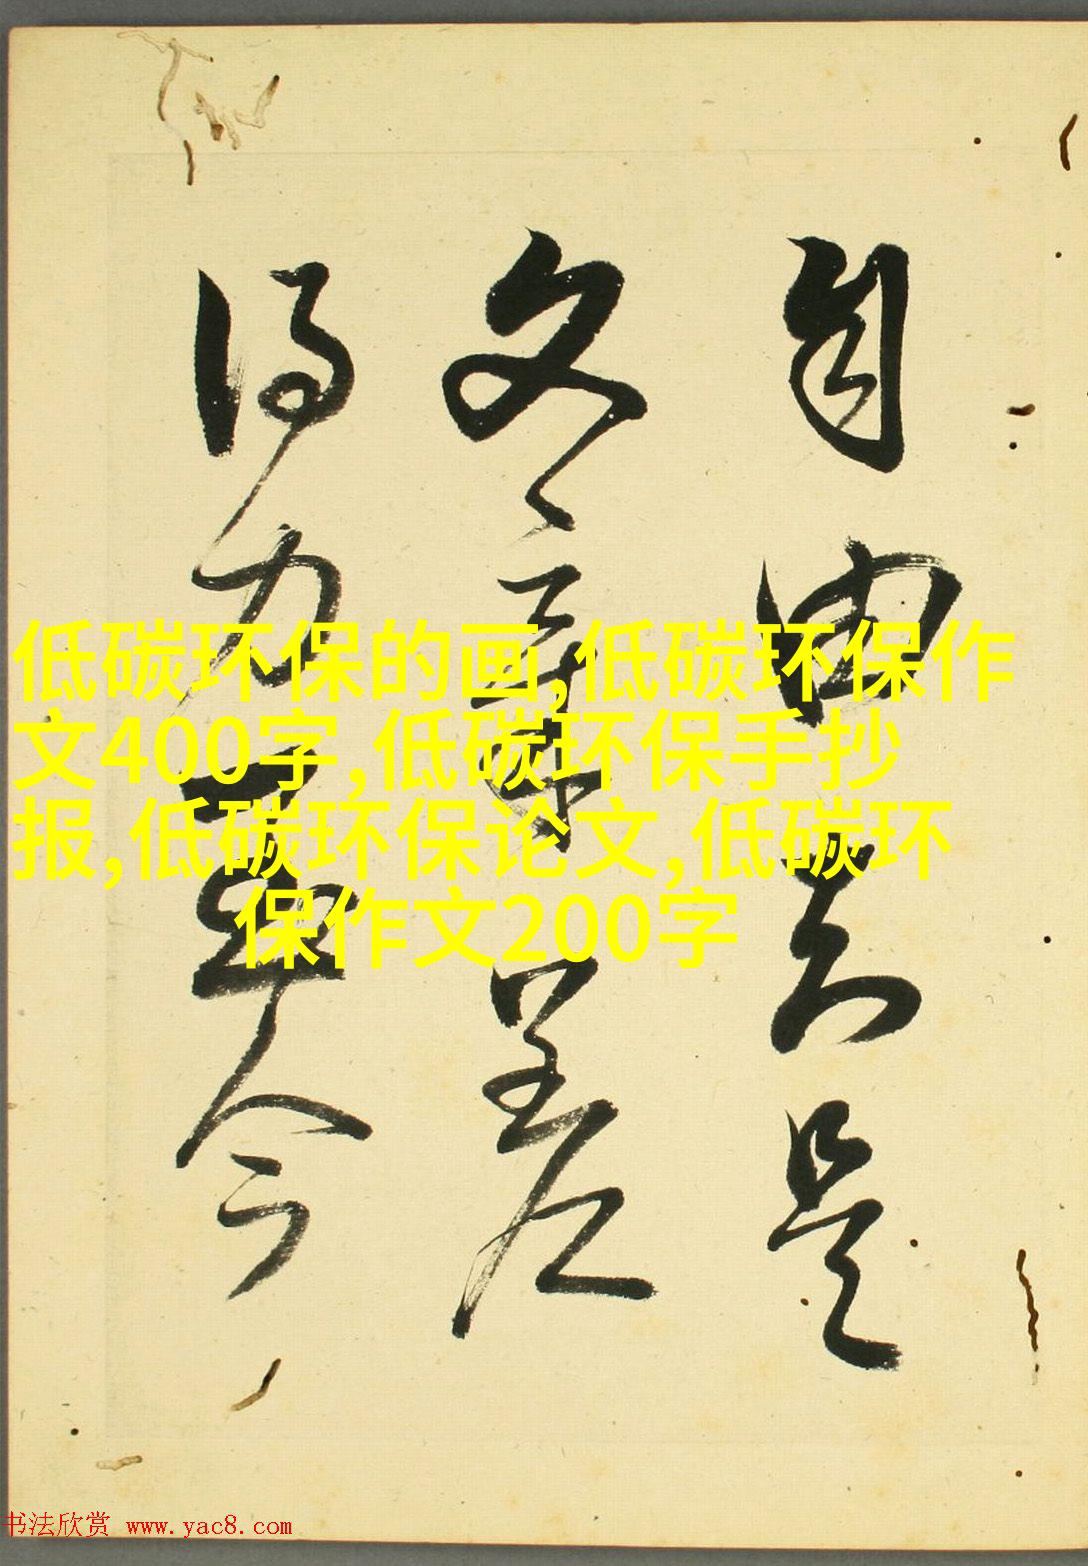 低碳环保的画,低碳环保作
文400字,低碳环保手抄
报,低碳环保论文,低碳环
保作文200字
自由是
文章
得力今
书法欣赏 www.yac8.com